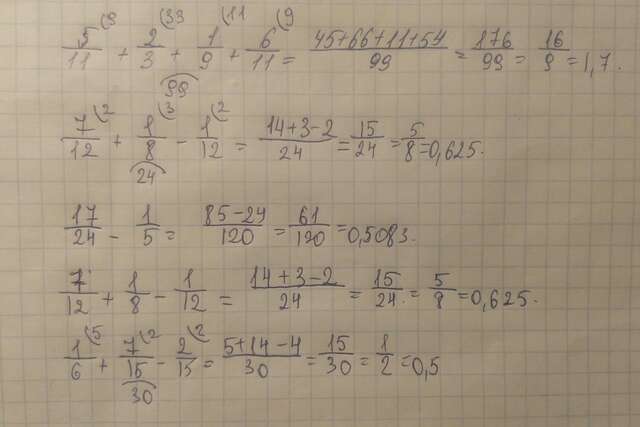 5/11 (9 + 2/3 (33 + 1/9 (11 + 6/11 (9 = 45+66+11+54/99 = 176/99 = 16/9 = 1,7.
99
7/12 (2 + 1/8 (3 - 1/12 (2 = 14+3-2/24 = 15/24 = 5/8 = 0,625.
24
17/24 - 1/5 = 85-24/120 = 61/120 = 0,5083.
7/12 + 1/8 - 1/12 = 14+3-2/24 = 15/24 = 5/8 = 0,625.
1/6 (5 + 7/15 (2 - 2/15 (2 = 5+14-4/30 = 15/30 = 1/2 = 0,5
30